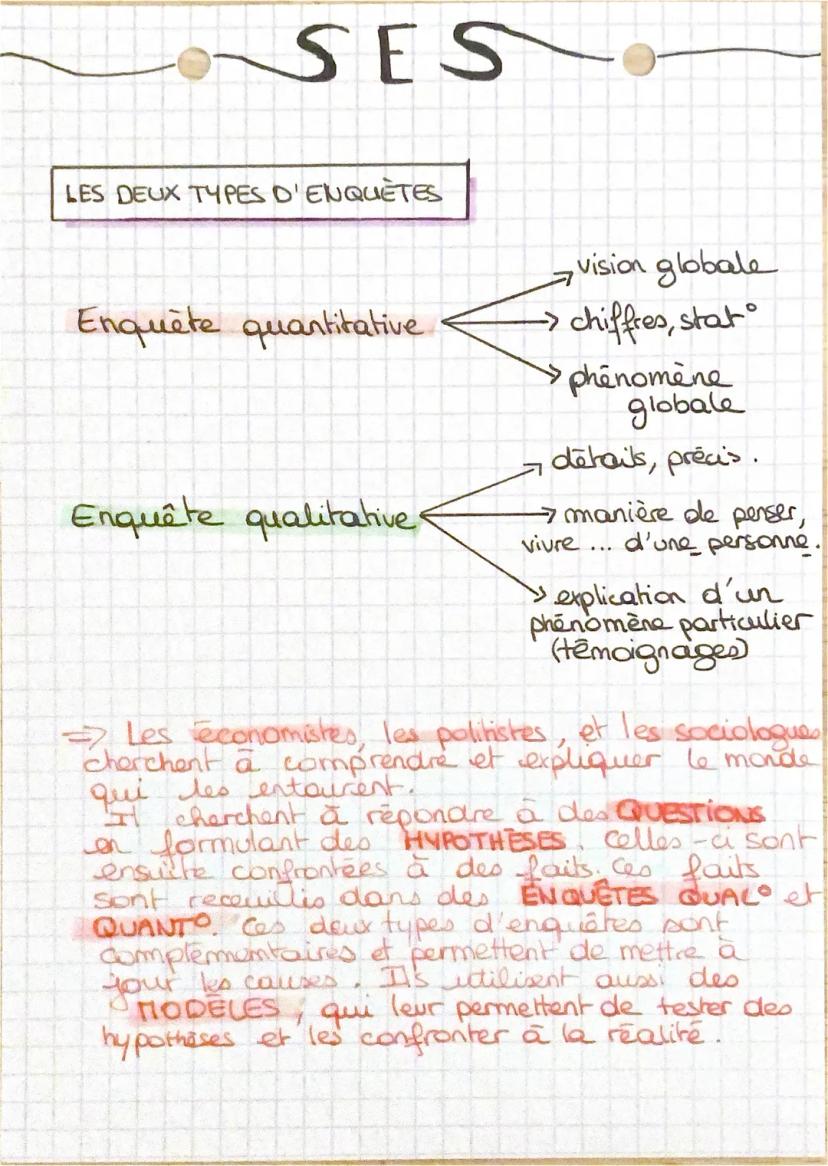 SES
LES DEUX TYPES D'ENQUÈTES
Enquète quantitative
→ vision globale
→ chiffres, stat°
→ phénomène
globale
Enquête qualitative
→ détails, précis.
→ manière de penser,
vivre ... d'une personne.
→ explication d'un
phénomène particulier
(témoignages)
=> Les économistes, les politistes, et les sociologues
cherchent à comprendre et expliquer le monde
qui les entourent.
Il cherchent à répondre à des QUESTIONS
en formulant des HYPOTHÈSES. Celles-ci sont
ensuite confrontées à des faits. Ces faits
sont receuillis dans des ENQUÊTES QUAL° et
QUANT°. Ces deux types d'enquêtes sont
complémentaires et permettent de mettre à
jour les causes. Ils utilisent aussi des
MODÈLES, qui leur permettent de tester des
hypothèses et les confronter à la réalité.